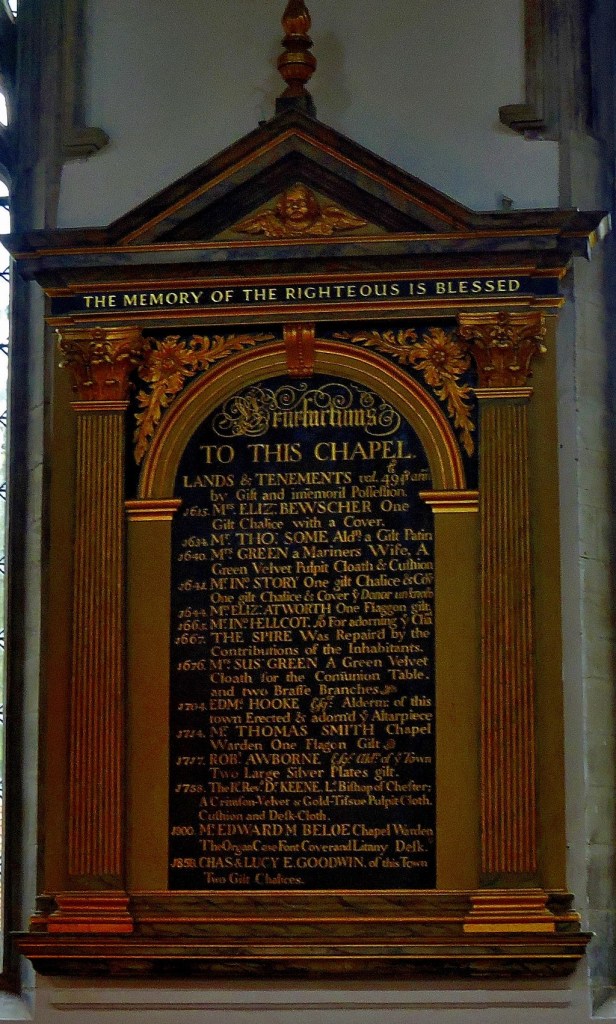 THE MEMORY OF THE RIGHTEOUS IS BLESSED
Benefactions
TO THIS CHAPEL.
LANDS & TENEMENTS val. 49
by Gift and imemoril Possession.
1615. Mrs. ELIZ: BEWSCHER One
Gilt Chalice with a Cover.
1634. Mr. THO: SOME Aldn. a Gilt Patin
1640. Mrs. GREEN a Mariners Wife, A
Green Velvet Pulpit Cloath & Cushion
1641. Mr. INo. STORY One gilt Chalice & Cov
One gilt Chalice & Cover ye Donor unknown
1644. Mrs. ELIZ: ATWORTH One Flaggon gilt
HELLCOT. For adorning ye
1667. THE SPIRE Was Repair'd by the
Contributions of the Inhabitants.
1676. Mrs. SUS: GREEN A Green Velvet
Cloath for the Comunion Table.
and two Brasse Branches.
1704. EDMd. HOOKE Esqr. Alderm: of this
town Erected & adorn'd ye Altarpiece
1714. Mr. THOMAS SMITH Chapel
Warden One Flagon Gilt
1717. ROBt. AWBORNE Esqr. Aldn. of ye Town
Two Large Silver Plates gilt.
1758. The Rt. Revd. Dr. KEENE, Ld. Bishop of Chester;
A Crimson-Velvet & Gold-Tissue Pulpit Cloth,
Cushion and Desk-Cloth.
1800. Mr. EDWARD M BELOE Chapel Warden
The Organ Case Font Cover and Litany Desk.
1858. CHAS & LUCY E. GOODWIN, of this Town
Two Gilt Chalices.